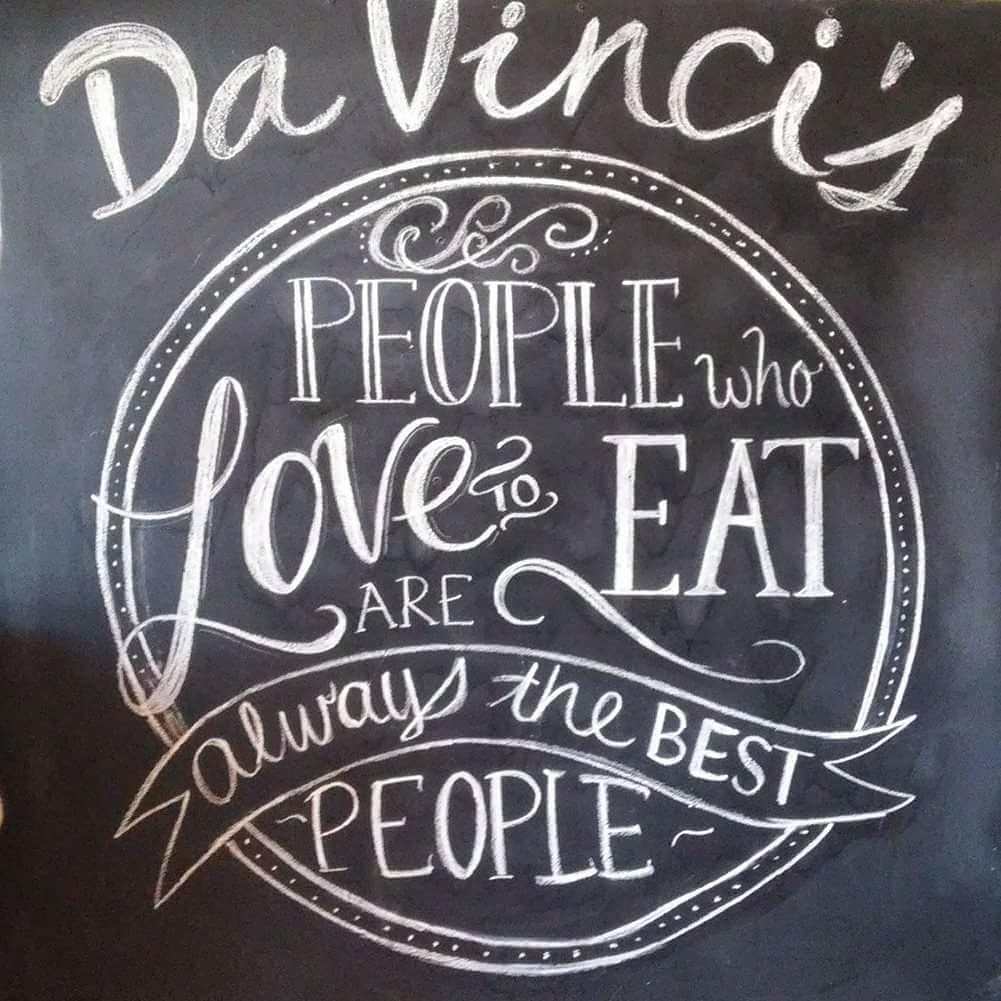 Da Vinci's
PEOPLE who
Love TO EAT
ARE
always the BEST
PEOPLE